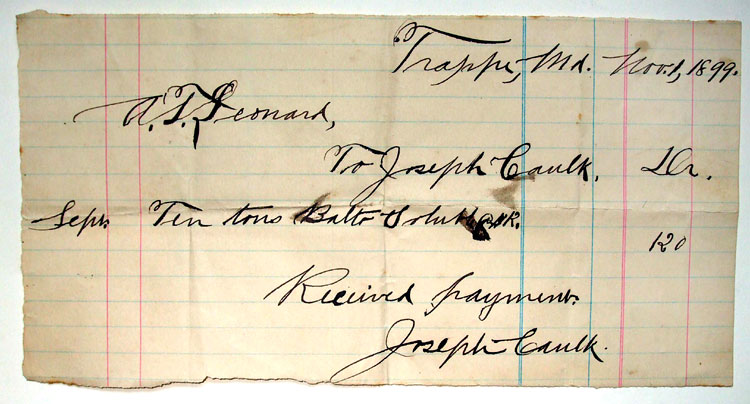 Trappe, Md. Nov. 1, 1899.
A. T. Leonard,
To Joseph Caulk, Dr.
Sept. Ten tons Balto
120
Received payment
Joseph Caulk.